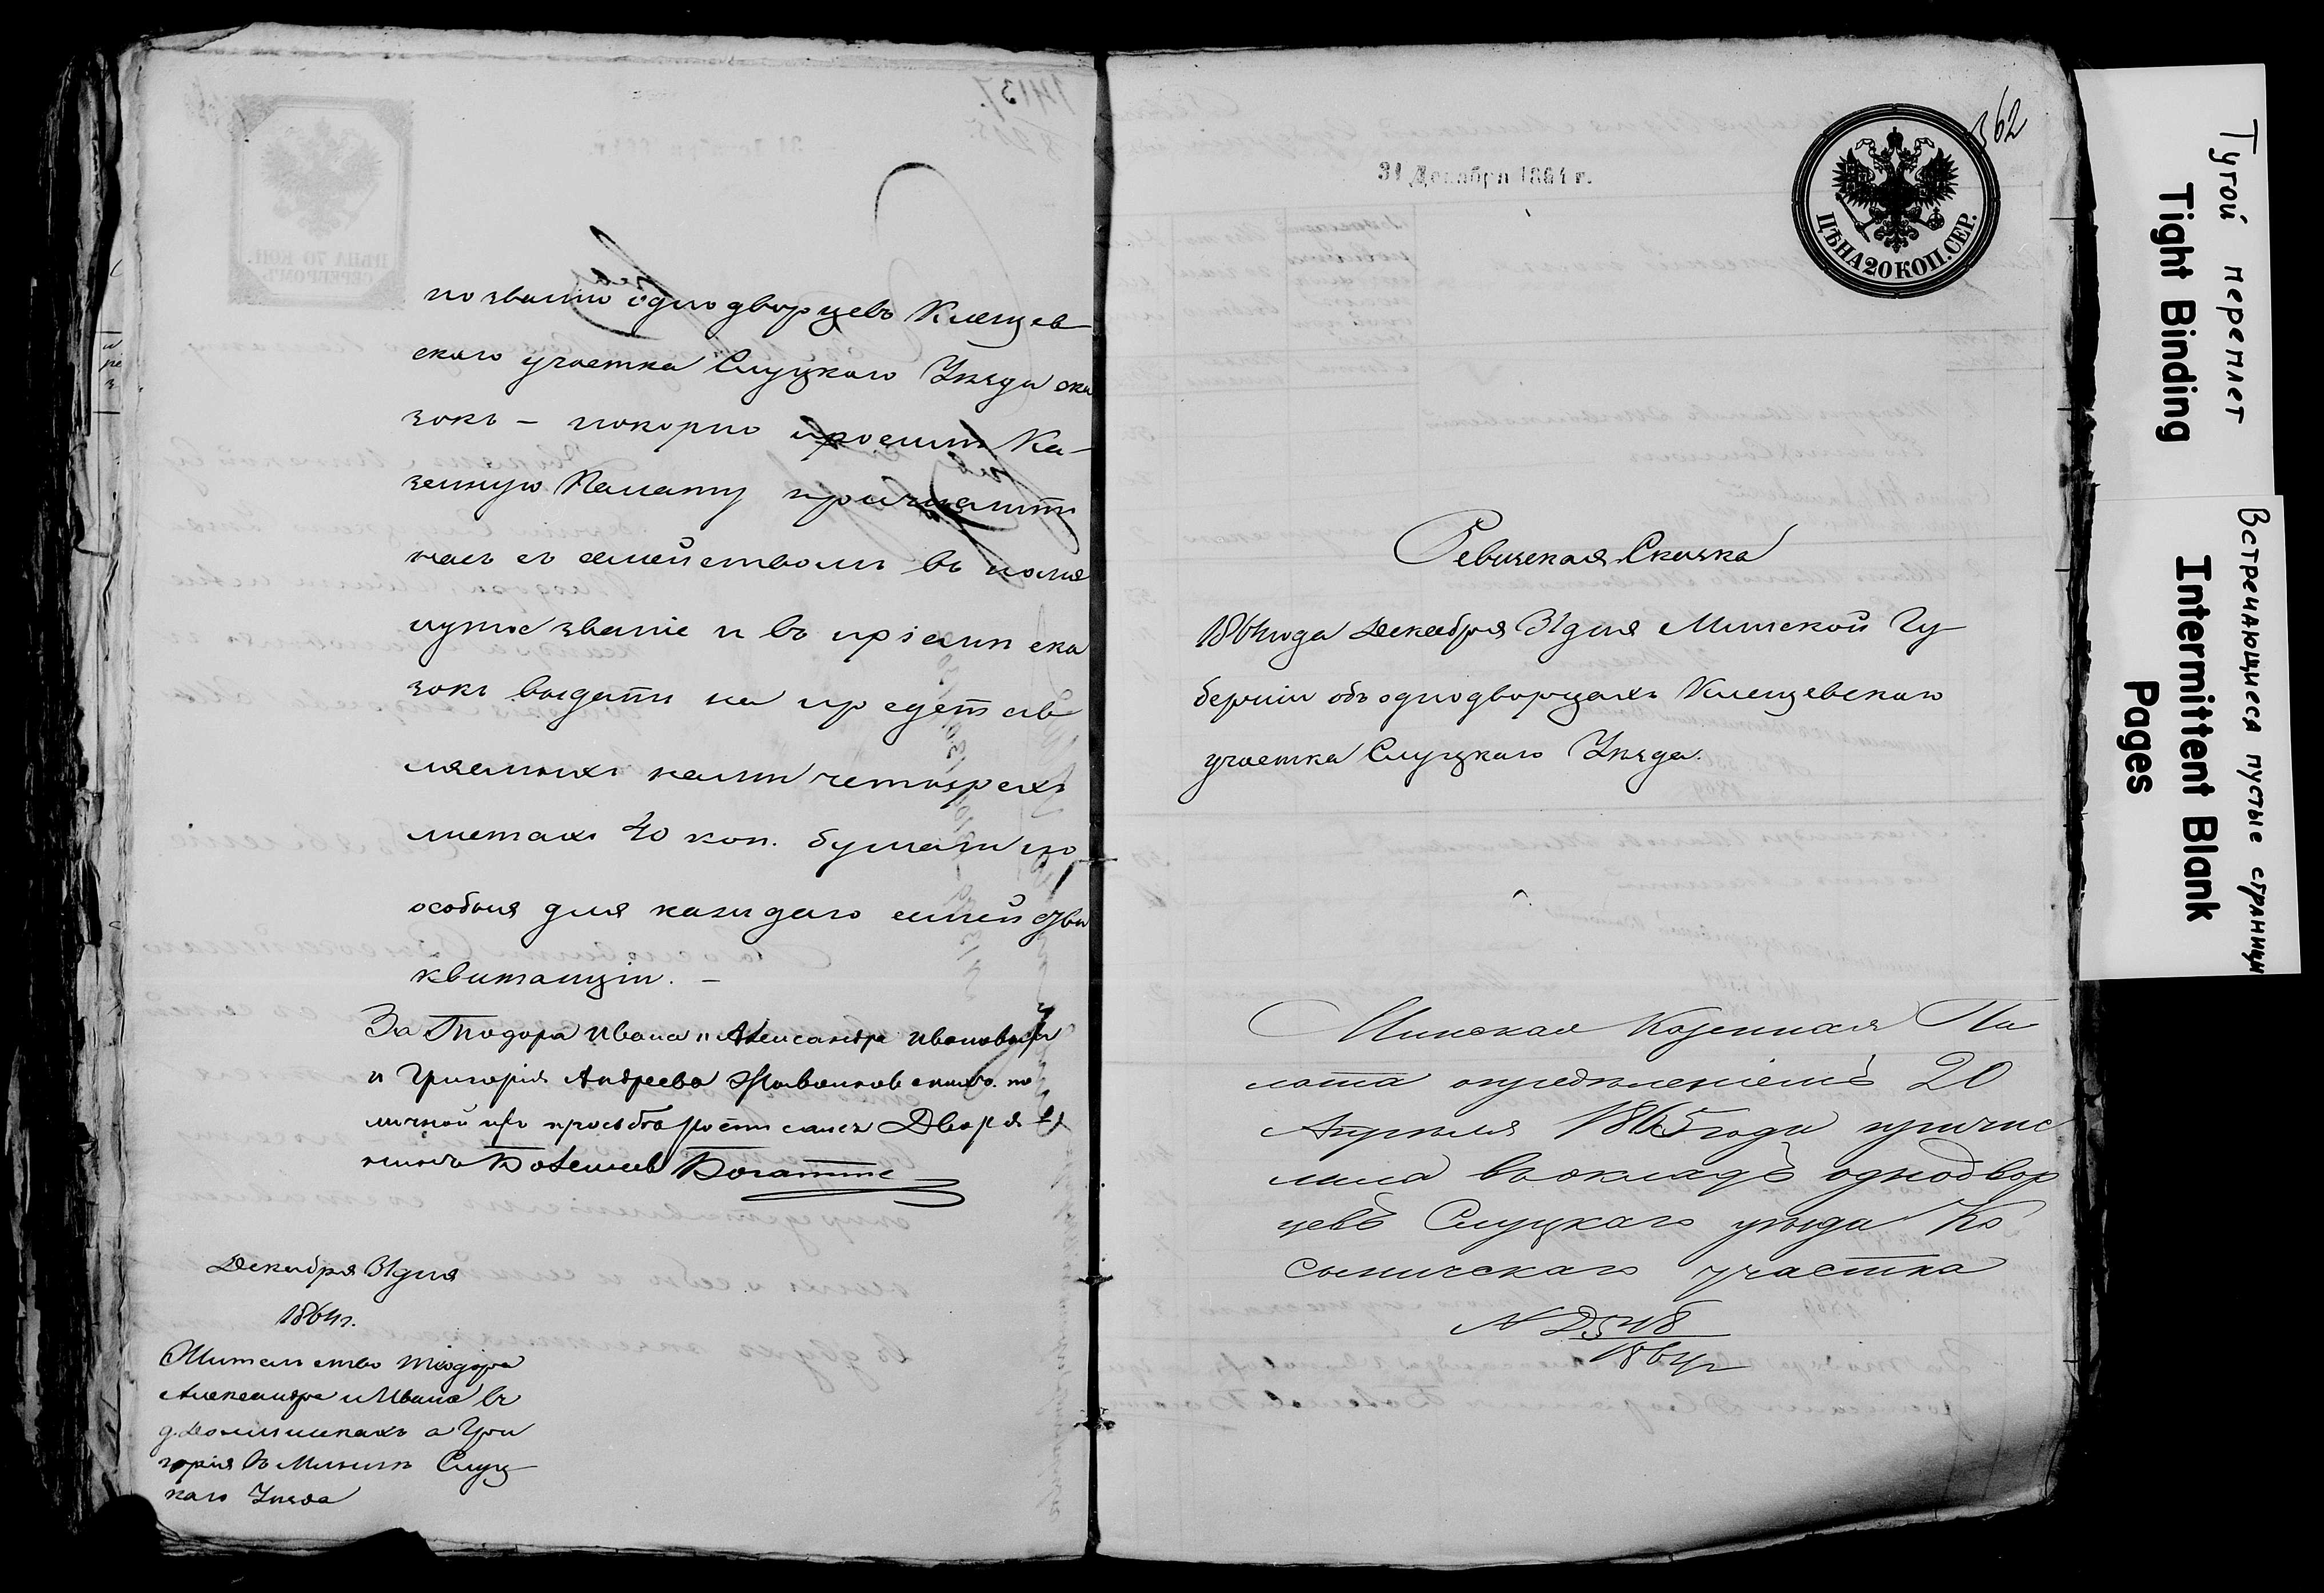 по званію однодворцевъ Клецев
скаго участка Слуцкаго Уѣзда ска
зокъ – покорно просимъ Ка-
зенную Палату причислить
насъ съ семействомъ въ помя
нутое званіе и въ пріемѣ ска
зокъ выдать на представ
ляемыхъ нами четырехъ
листахъ 40 коп. бумаги по
особыя для каждаго семейства
квитанціи. –
За Тіодора Ивана и Александра Ивановыхъ
и Григорія Андреева по
личной их просьбѣ росписался Дворя
нинъ Болеслав
Декабря 31 дня
1864 г.
Жительство Тіодора
Александра и Ивана въ
д. а Гри
горія въ Слуц
каго Уѣзда
362
31 Декабря 1864 г.
ЦѢНА 20 КОП. СЕР.
Ревизская Сказка
1864 года Декабря 31 дня Минской Гу
берніи объ однодворцахъ Клецевскаго
участка Слуцкаго Уѣзда.
Минская Казенная Па
лата опредѣленіемъ 20
Апрѣля 1865 года причис
лила въ окладъ одноdвор
цевъ Слуцкаго уѣзда
участка
1864 г
Тугой переплет
Tight Binding
Встречающиеся пустые страницы
Intermittent Blank
Pages